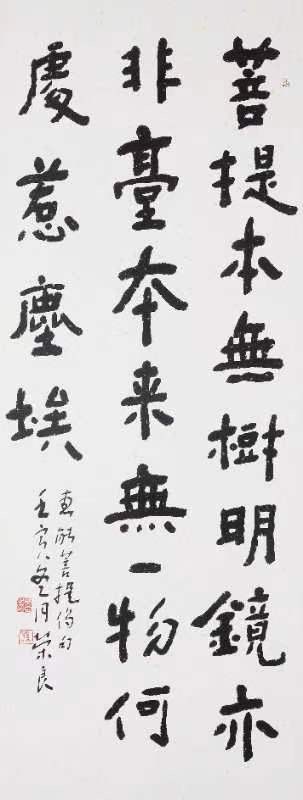 菩提本無樹明鏡亦
非臺本来無一物何
處惹塵埃
惠能菩提偈句
壬寅冬月榮良